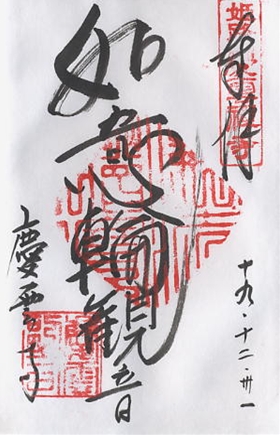 奉拝
十九・十二・卅一
如意輪観音
慶雲寺